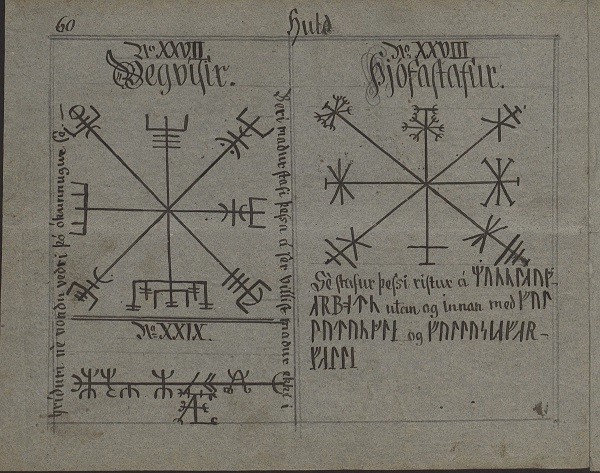 60
Huld
No. XXVII
Vegvisir.
Beri maður stafi þessa á sèr villist maður ekki i
hriðum nè vondu veðri þó ókunnugur sè.
No. XXIX.
No. XXVIII
Þjófastafur.
Sè stafur þessi ristur á
utan og innan með
og